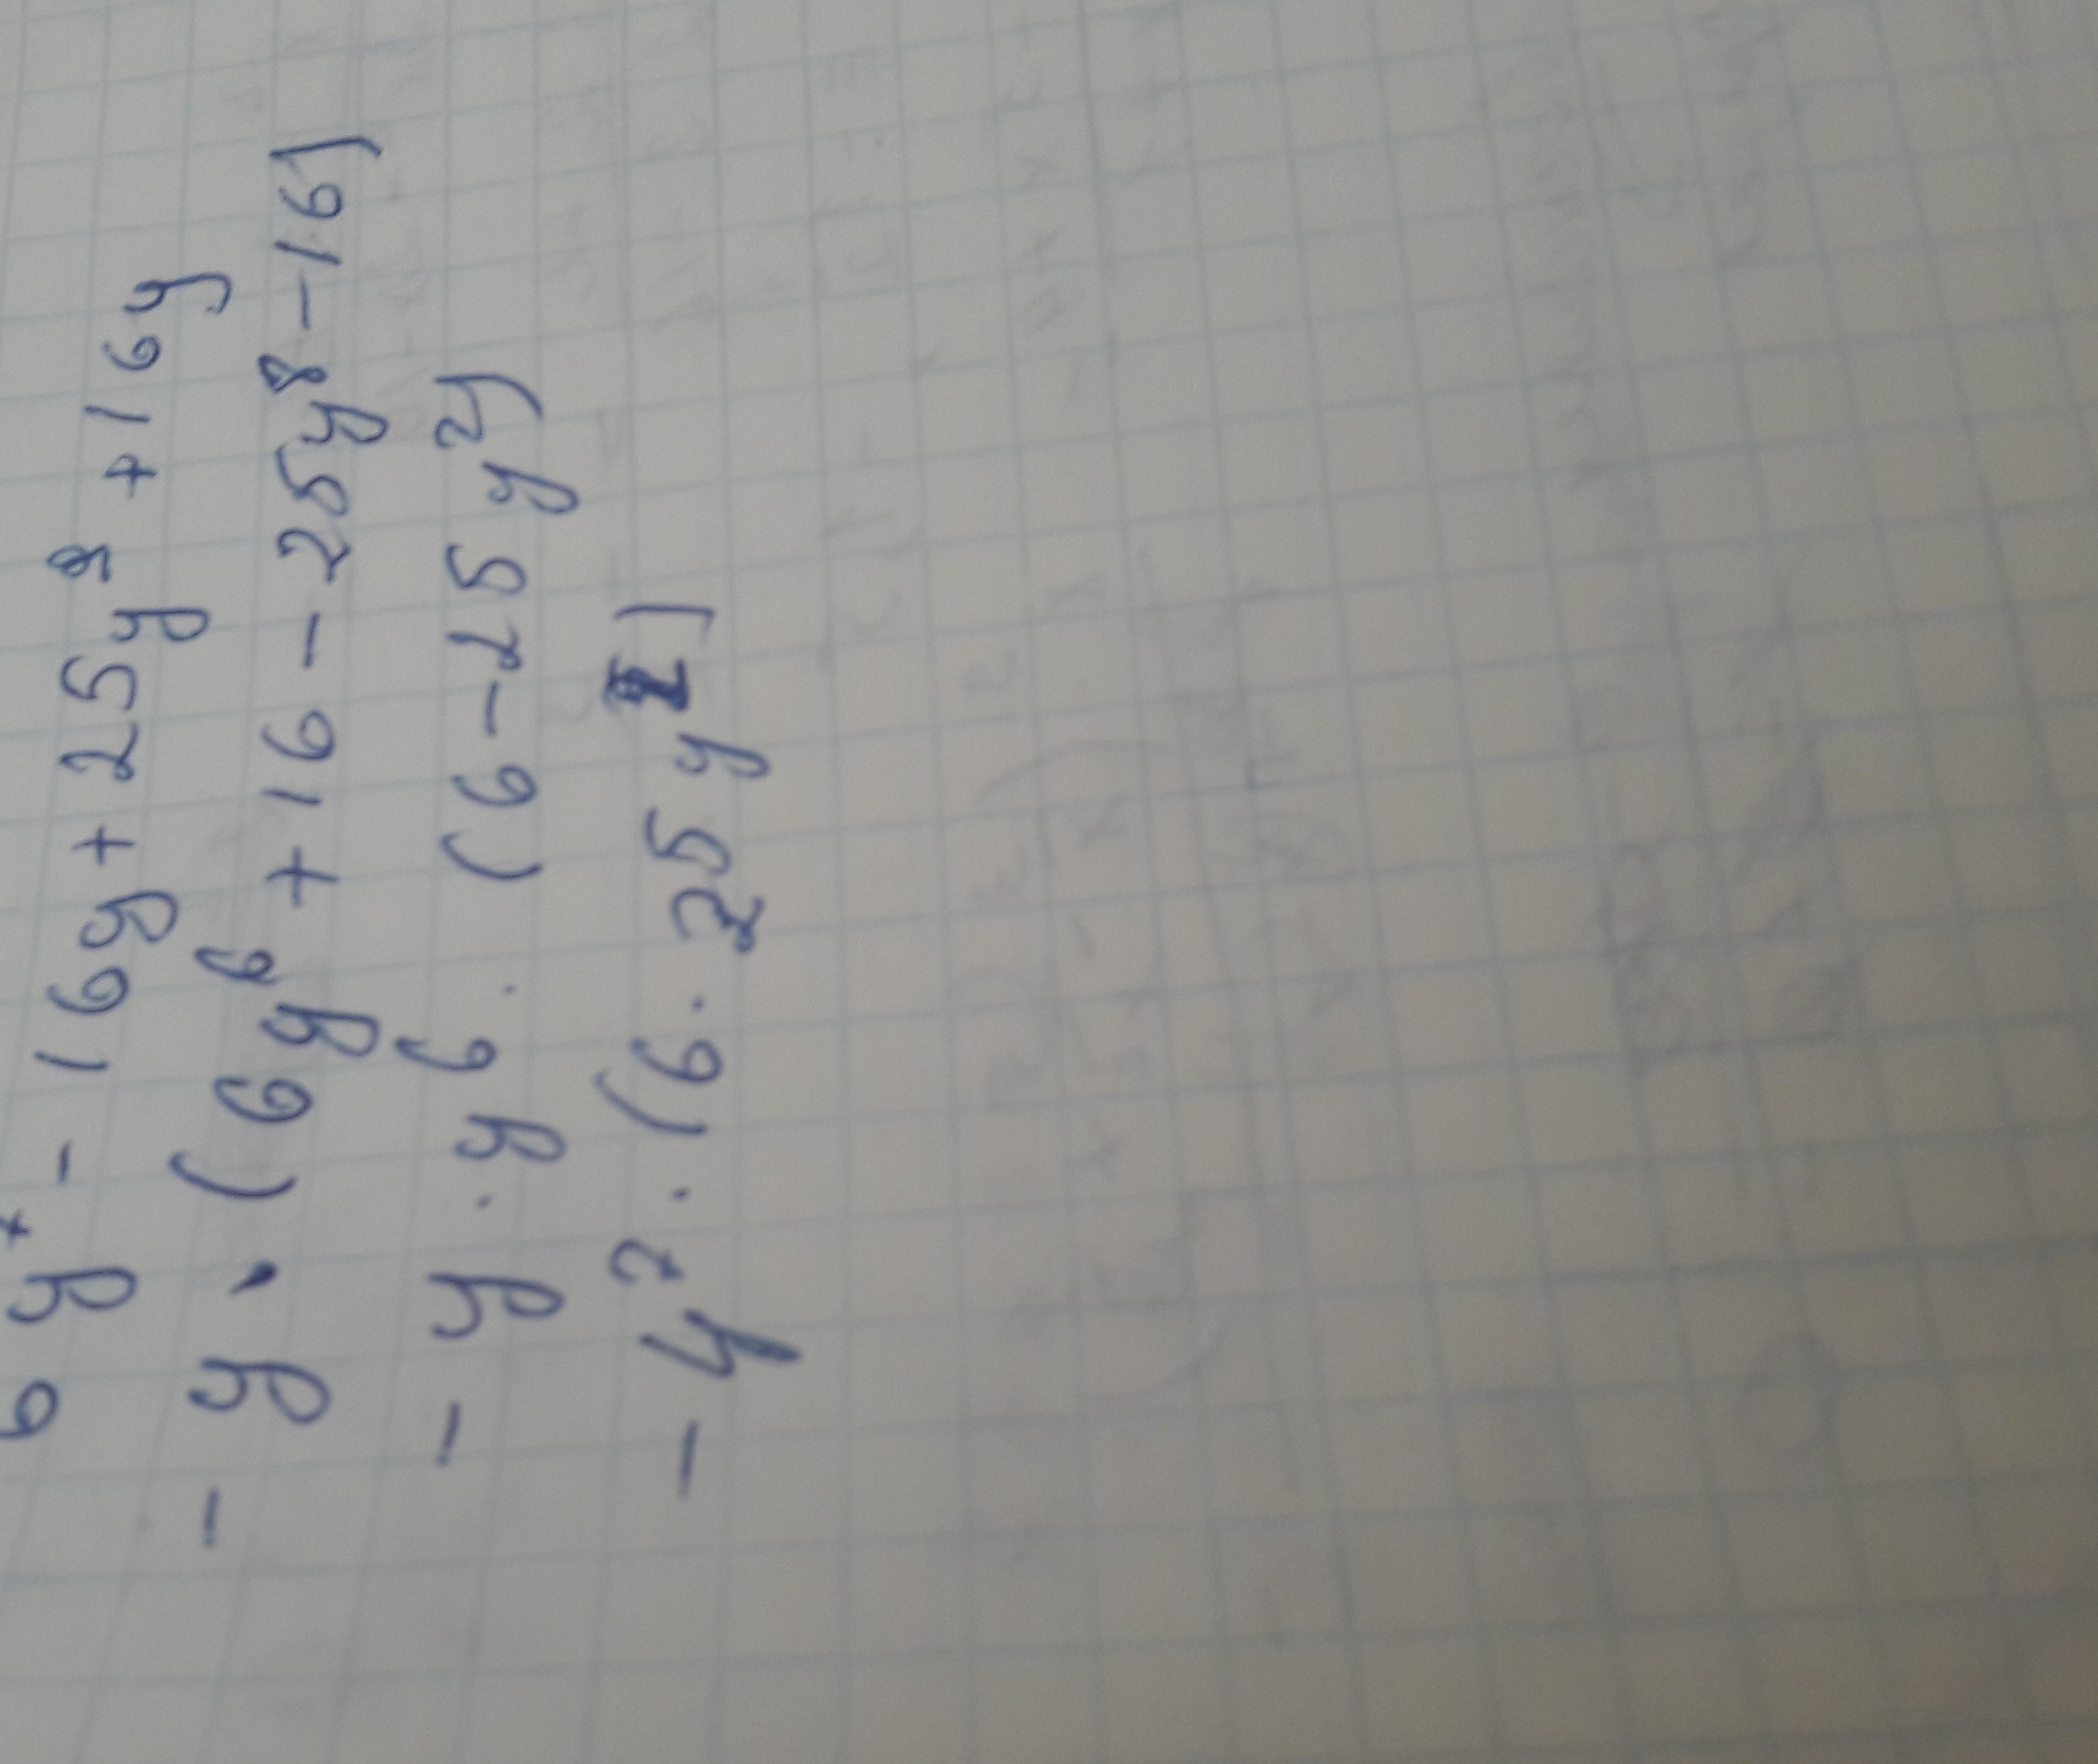 6y⁷ - 16y + 25y⁹ + 16y
- y · (6y⁶ + 16 - 25y⁸ - 16)
- y · y⁶ · (6 - 25y²)
- y⁷ · (6 · 25y²)